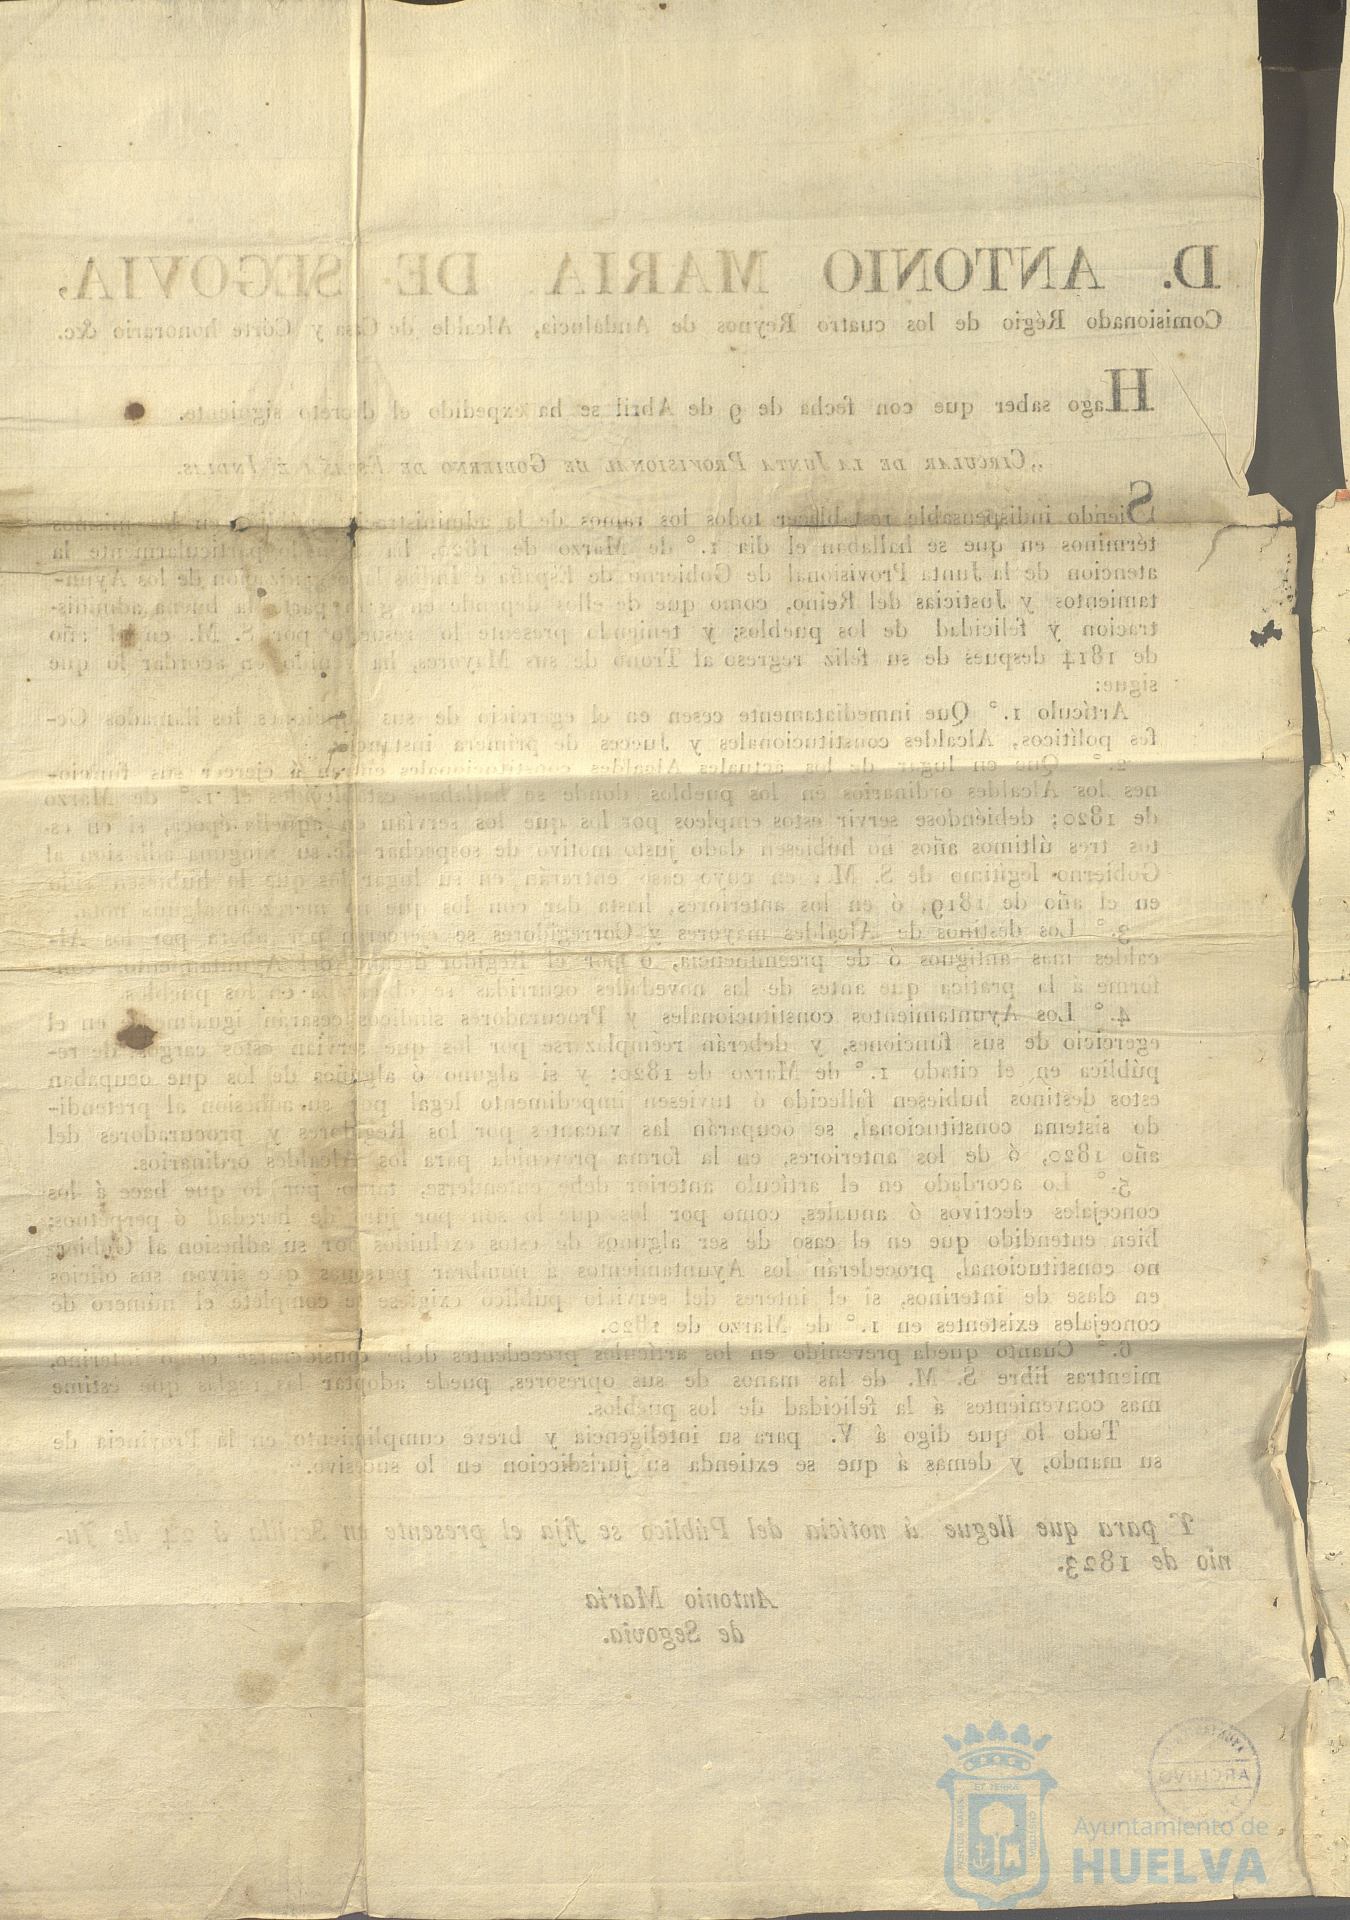 D. ANTONIO MARIA DE SEGOVIA,
Comisionado Régio de los cuatro Reynos de Andalucía, Alcalde de Casa y Córte honorario &c.
Hago saber que con fecha de 9 de Abril se ha expedido el decreto siguiente.
„CIRCULAR DE LA JUNTA PROVISIONAL DE GOBIERNO DE ESPAÑA É INDIAS.
Siendo indispensable restablecer todos los ramos de la administracion pública en los mismos
términos en que se hallaban el dia 1.° de Marzo de 1820, ha particularmente la
atencion de la Junta Provisional de Gobierno de España é Indias la organizacion de los Ayun-
tamientos y Justicias del Reino, como que de ellos depende en gran parte la buena adminis-
tracion y felicidad de los pueblos; y teniendo presente lo resuelto por S. M. en el año
de 1814 despues de su feliz regreso al Trono de sus Mayores, ha venido en acordar lo que
sigue:
Artículo 1.° Que inmediatamente cesen en el egercicio de sus funciones los llamados Ge-
fes políticos, Alcaldes constitucionales y Jueces de primera instancia.
2.° Que en lugar de los actuales Alcaldes constitucionales entren á ejercer sus funcio-
nes los Alcaldes ordinarios en los pueblos donde se hallaban establecidos el 1.° de Marzo
de 1820; debiéndose servir estos empleos por los que los servían en aquella época, si en es-
tos tres últimos años no hubiesen dado justo motivo de sospechar de su ninguna adhesion al
Gobierno legítimo de S. M.: en cuyo caso entrarán en su lugar los que lo hubiesen sido
en el año de 1819, ó en los anteriores, hasta dar con los que no merezcan alguna nota.
3.° Los destinos de Alcaldes mayores y Corregidores se ejercerán por ahora por los Al-
caldes mas antiguos ó de preeminencia, ó por el Regidor decano del Ayuntamiento, con-
forme á la prática que antes de las novedades ocurridas se observaba en los pueblos.
4.° Los Ayuntamientos constitucionales y Procuradores síndicos cesarán igualmente en el
egercicio de sus funciones, y deberán reemplazarse por los que servian estos cargos de re-
pública en el citado 1.° de Marzo de 1820; y si alguno ó algunos de los que ocupaban
estos destinos hubiesen fallecido ó tuviesen impedimento legal por su adhesion al pretendi-
do sistema constitucional, se ocuparán las vacantes por los Regidores y procuradores del
año 1820, ó de los anteriores, en la forma prevenida para los Alcaldes ordinarios.
5.° Lo acordado en el artículo anterior debe entenderse, tanto por lo que hace á los
concejales electivos ó anuales, como por los que lo son por juro de heredad ó perpétuos;
bien entendido que en el caso de ser algunos de estos excluidos por su adhesion al Gobier-
no constitucional, procederán los Ayuntamientos á nombrar personas que sirvan sus oficios
en clase de interinos, si el interes del servicio público exigiese se complete el número de
concejales existentes en 1.° de Marzo de 1820.
6.° Cuanto queda prevenido en los artículos precedentes debe considerarse como interino,
mientras libre S. M. de las manos de sus opresores, puede adoptar las reglas que estime
mas convenientes á la felicidad de los pueblos.
Todo lo que digo á V. para su inteligencia y breve cumplimiento en la Provincia de
su mando, y demas á que se extienda su jurisdiccion en lo sucesivo."
Y para que llegue á noticia del Público se fija el presente en Sevilla á 24 de Ju-
nio de 1823.
Antonio María
de Segovia.
ARCHIVO
Ayuntamiento de
HUELVA